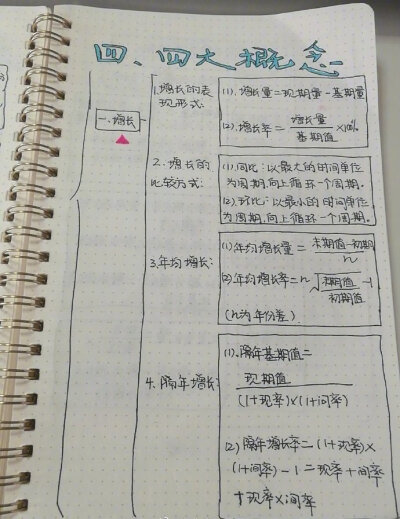 四、四大概念
一.增长
1.增长的表
现形式:
(1).增长量=现期量-基期量
(2).增长率=增长量/基期值×100%
2.增长的
比较方式:
(1).同比:以最大的时间单位
为周期,向上循环一个周期。
(2).环比:以最小的时间单位
为周期,向上循环一个周期。
3.年均增长:
(1)年均增长量=末期值-初期/n
(2)年均增长率=n√末期值/初期值-1
(n为年份差)
4.隔年增长:
(1).隔年基期值=
现期值
(1+现率)×(1+间率)
(2)隔年增长率=(1+现率)×
(1+间率)-1=现率+间率
+现率×间率